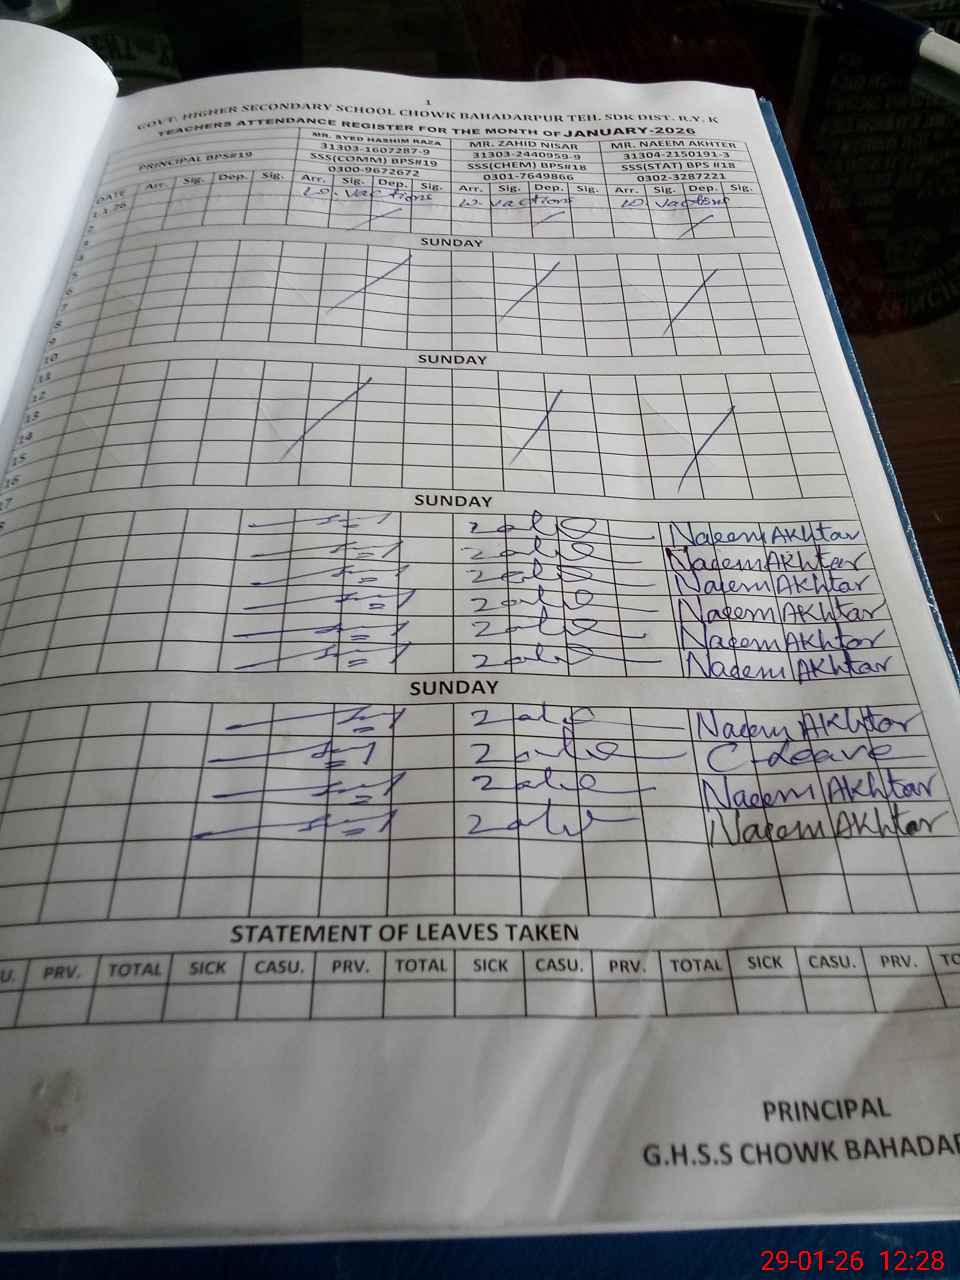 1
GOVT. HIGHER SECONDARY SCHOOL CHOWK BAHADARPUR TEH. SDK DIST. R.Y. K
TEACHERS ATTENDANCE REGISTER FOR THE MONTH OF JANUARY-2026
MR. SYED HASHIM RAZA MR. ZAHID NISAR MR. NAEEM AKHTER
31303-1607287-9 31303-2440959-9 31304-2150191-3
PRINCIPAL BPS#19 SSS(COMM) BPS#19 SSS(CHEM) BPS#18 SSS(STAT) BPS #18
0300-9672672 0301-7649866 0302-3287221
DATE Arr. Sig. Dep. Sig. Arr. Sig. Dep. Sig. Arr. Sig. Dep. Sig. Arr. Sig. Dep. Sig.
1.1.26 W. vactions W. vactions W. vactions
2
SUNDAY
4
5
6
7
8
9
10
SUNDAY
11
12
13
14
15
16
17
SUNDAY
Naeem Akhtar
Naeem Akhtar
Naeem Akhtar
Naeem Akhtar
Naeem Akhtar
Naeem Akhtar
SUNDAY
Naeem Akhtar
C-Leave
Naeem Akhtar
Naeem Akhtar
STATEMENT OF LEAVES TAKEN
U. PRV. TOTAL SICK CASU. PRV. TOTAL SICK CASU. PRV. TOTAL SICK CASU. PRV. TO
PRINCIPAL
G.H.S.S CHOWK BAHADAR
29-01-26 12:28